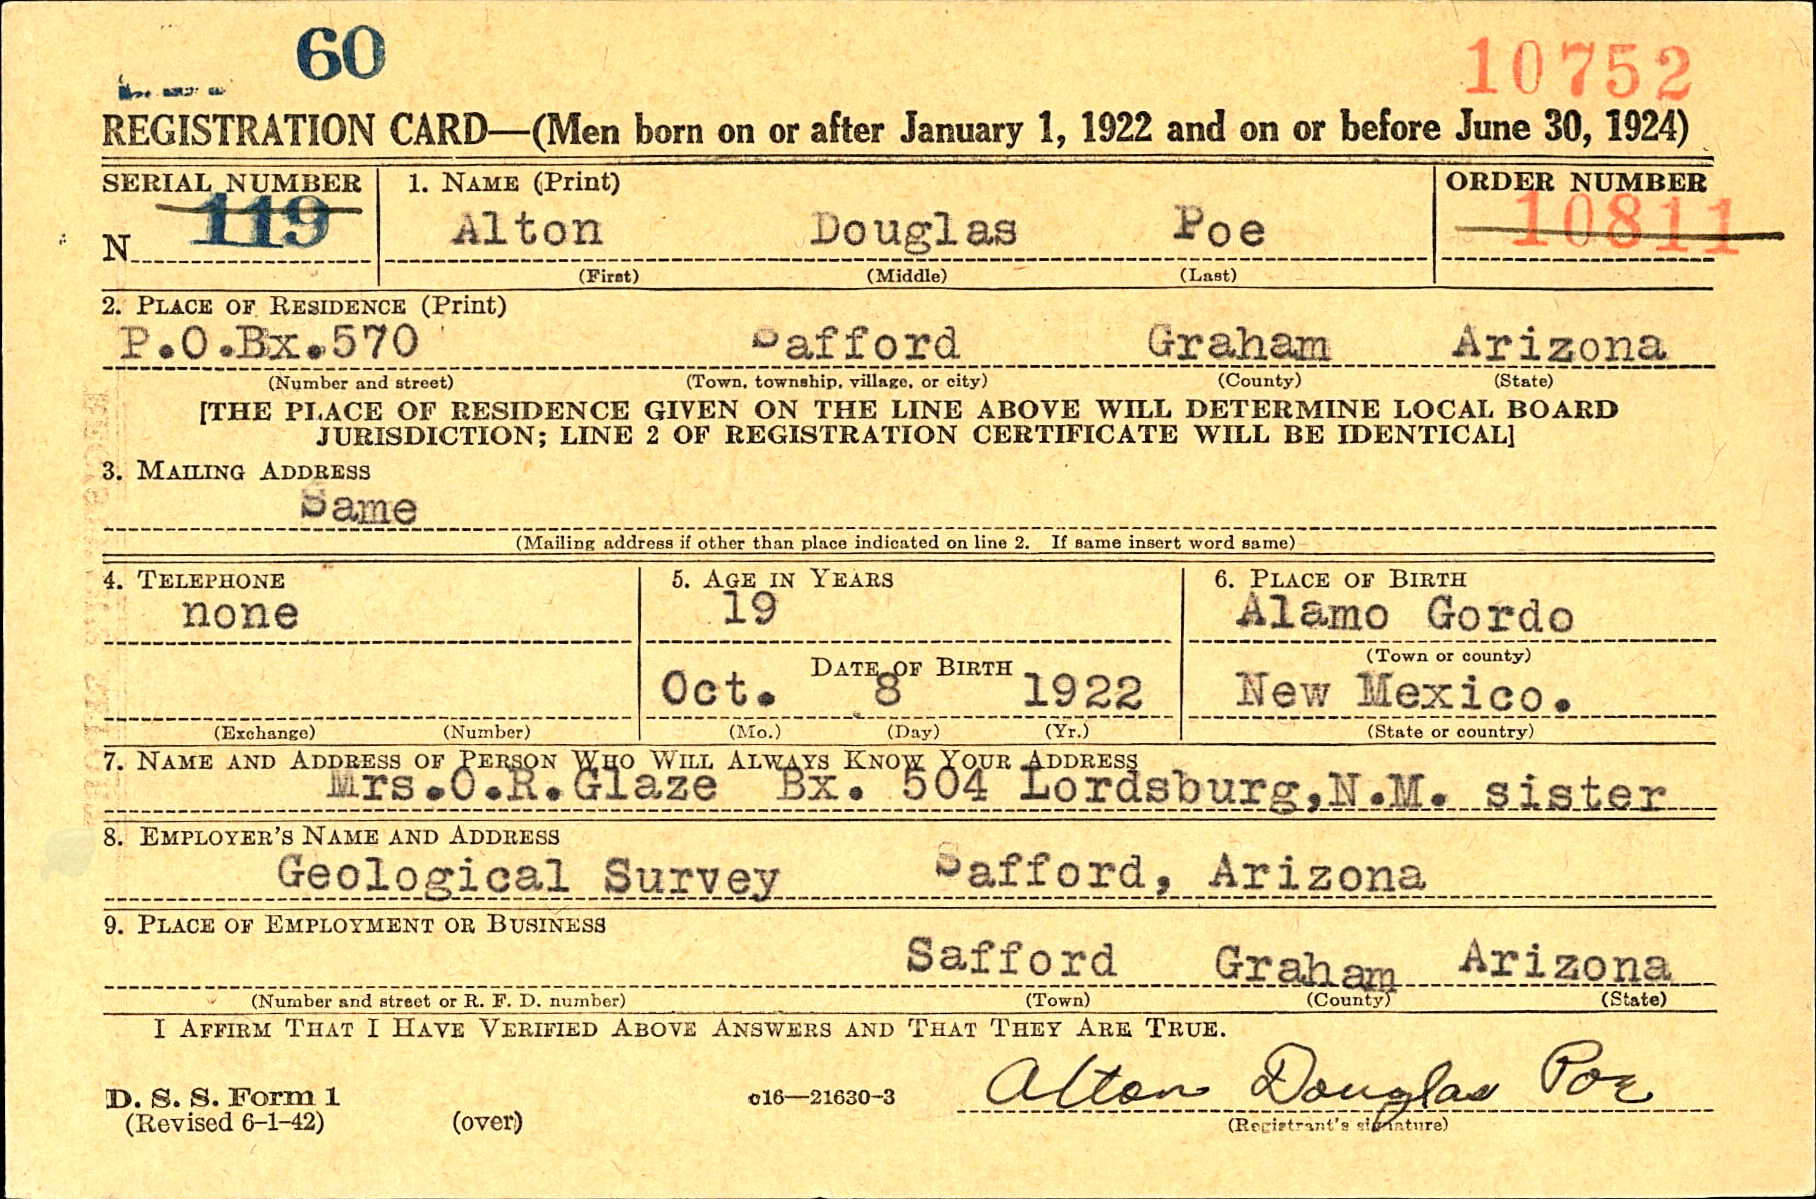 60
10752
REGISTRATION CARD—(Men born on or after January 1, 1922 and on or before June 30, 1924)
SERIAL NUMBER 1. NAME (Print) ORDER NUMBER
N 119 Alton Douglas Poe 10811
(First) (Middle) (Last)
2. PLACE OF RESIDENCE (Print)
P.O.Bx.570 Safford Graham Arizona
(Number and street) (Town, township, village, or city) (County) (State)
[THE PLACE OF RESIDENCE GIVEN ON THE LINE ABOVE WILL DETERMINE LOCAL BOARD
JURISDICTION; LINE 2 OF REGISTRATION CERTIFICATE WILL BE IDENTICAL]
3. MAILING ADDRESS
Same
(Mailing address if other than place indicated on line 2. If same insert word same)
4. TELEPHONE 5. AGE IN YEARS 6. PLACE OF BIRTH
none 19 Alamo Gordo
DATE OF BIRTH (Town or county)
Oct. 8 1922 New Mexico.
(Exchange) (Number) (Mo.) (Day) (Yr.) (State or country)
7. NAME AND ADDRESS OF PERSON WHO WILL ALWAYS KNOW YOUR ADDRESS
Mrs.O.R.Glaze Bx. 504 Lordsburg,N.M. sister
8. EMPLOYER'S NAME AND ADDRESS
Geological Survey Safford, Arizona
9. PLACE OF EMPLOYMENT OR BUSINESS
Safford Graham Arizona
(Number and street or R. F. D. number) (Town) (County) (State)
I AFFIRM THAT I HAVE VERIFIED ABOVE ANSWERS AND THAT THEY ARE TRUE.
D. S. S. Form 1 c16—21630-3 Alton Douglas Poe
(Revised 6-1-42) (over) (Registrant's signature)